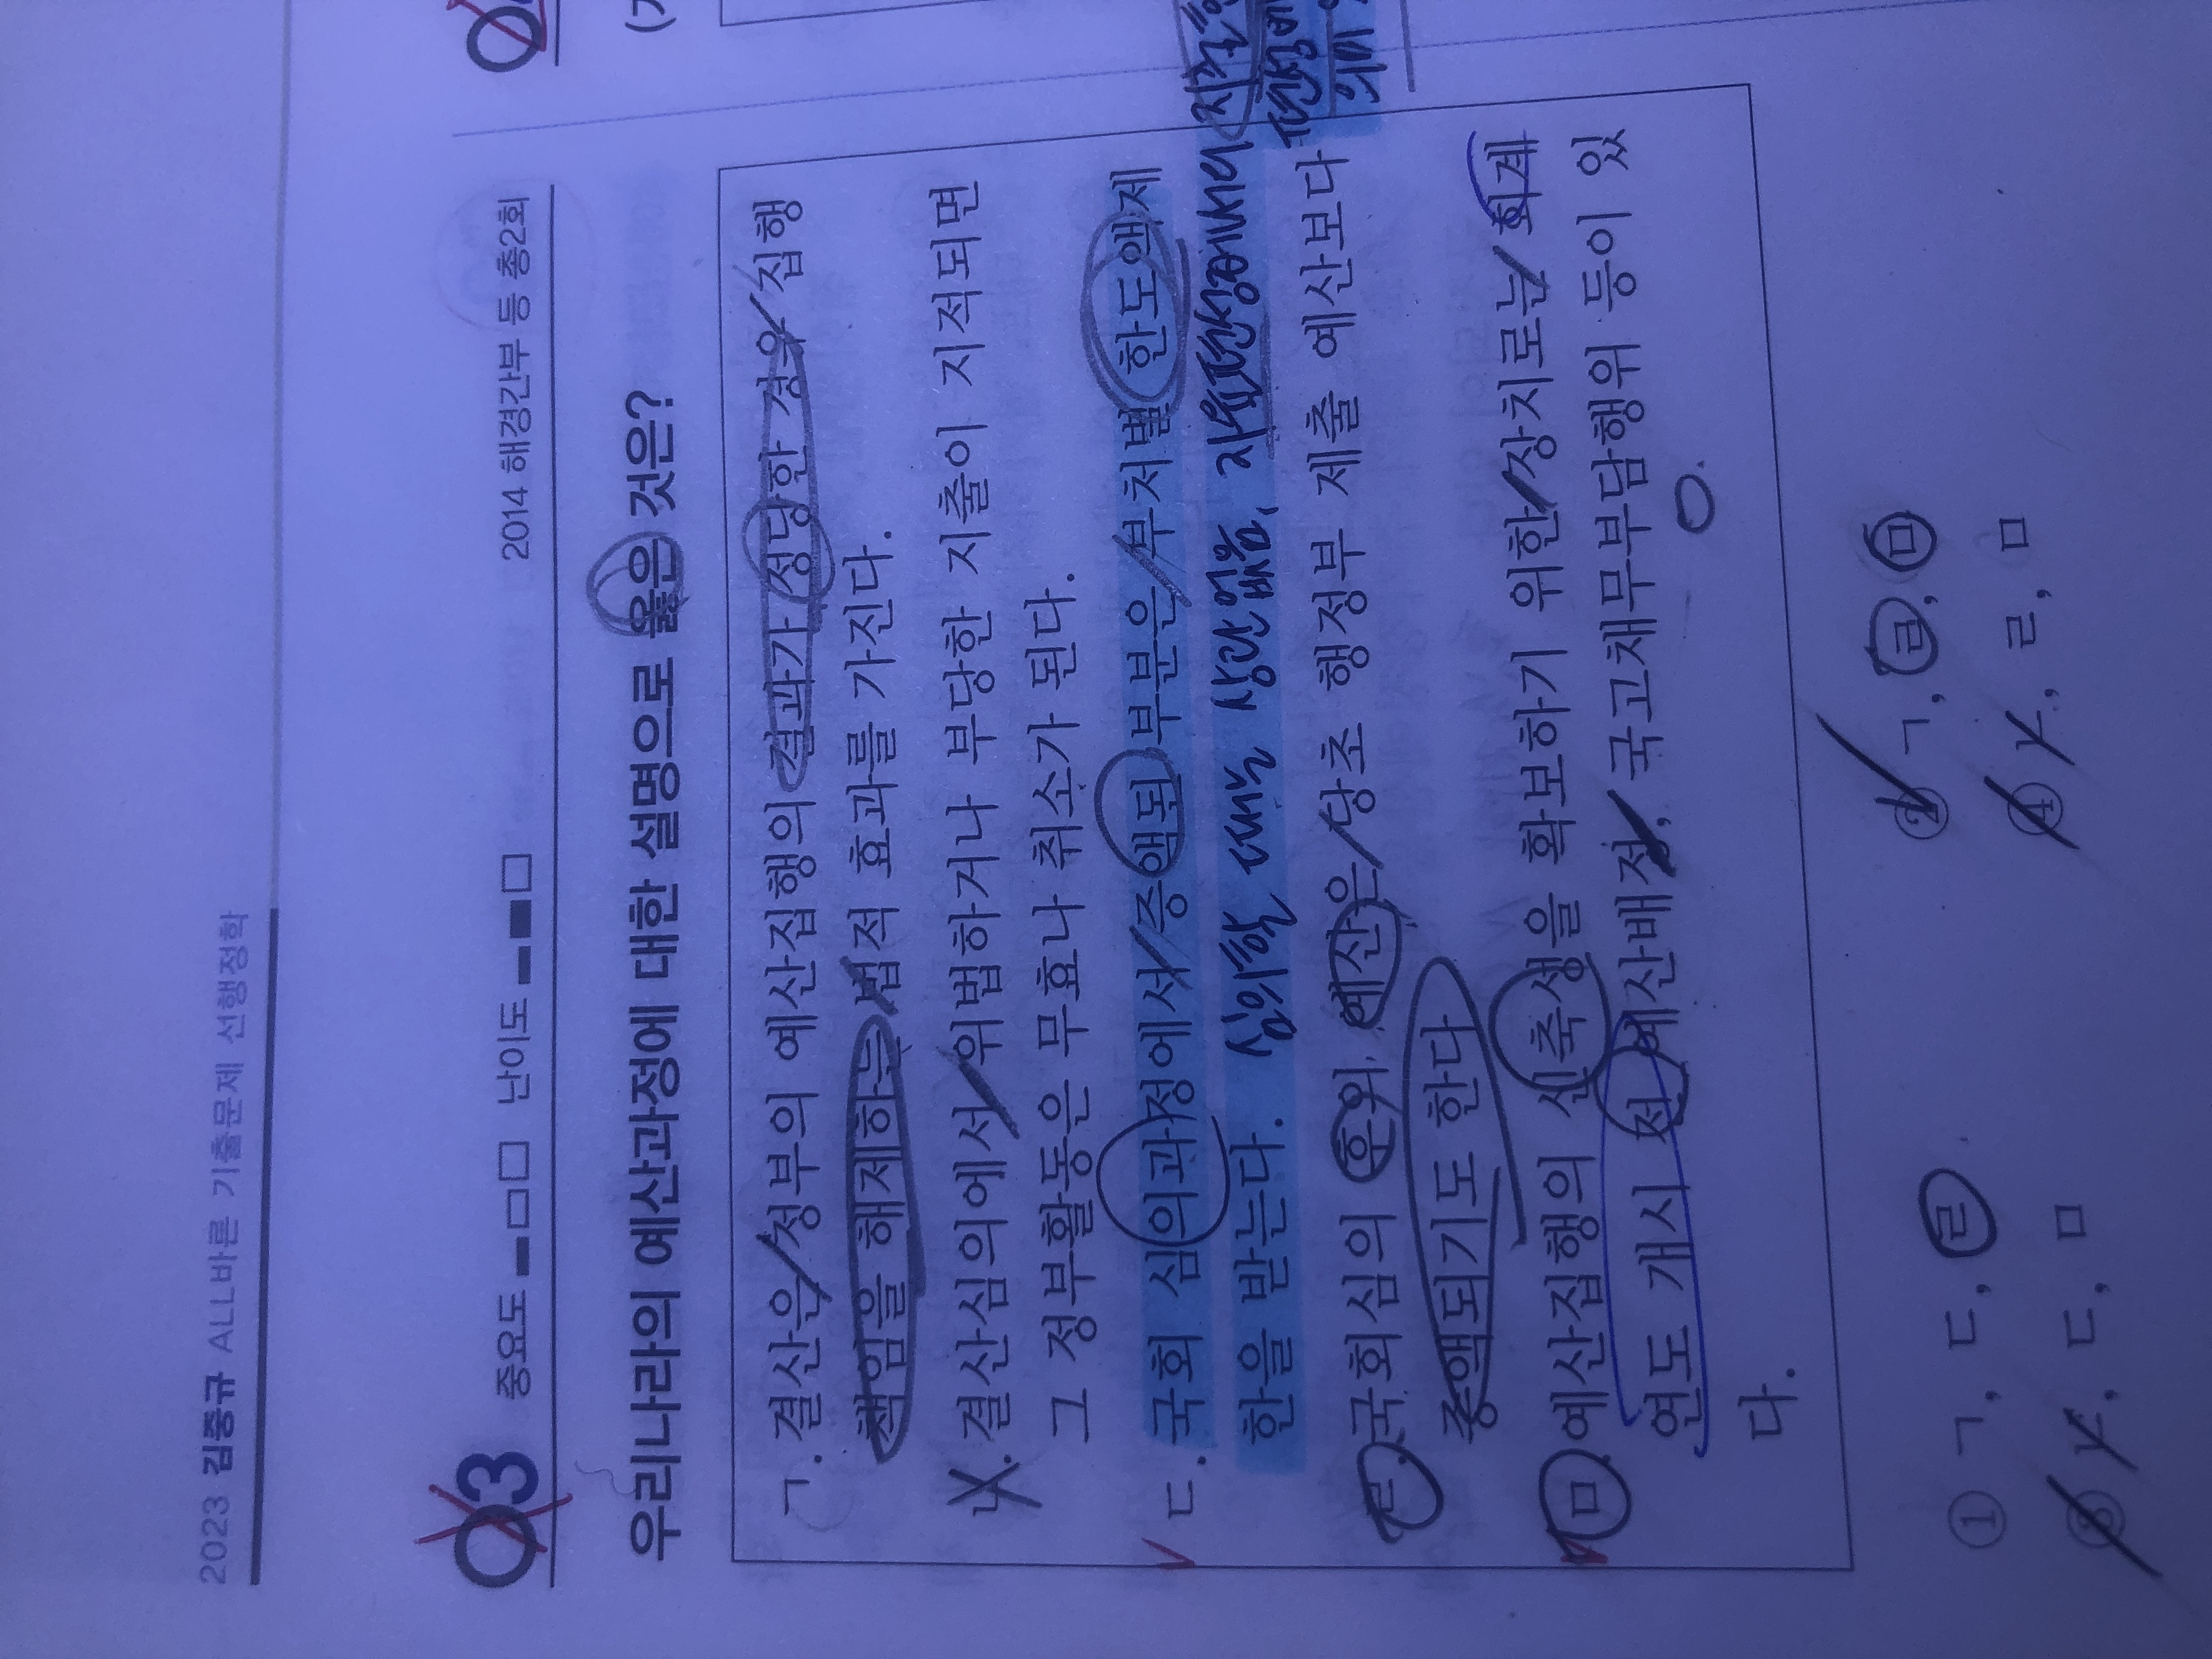 2023 김중규 ALL바른 기출문제 선행정학
03 중요도 난이도 2014 해경간부 등 총2회
우리나라의 예산과정에 대한 설명으로 옳은 것은?
ㄱ. 결산은 정부의 예산집행의 결과가 정당한 경우 집행
책임을 해제하는 법적 효과를 가진다.
ㄴ. 결산심의에서 위법하거나 부당한 지출이 지적되면
그 정부활동은 무효나 취소가 된다.
ㄷ. 국회 심의과정에서 증액된 부분은 부처별 한도액 제
한을 받는다. 심의할 때는 상관 없음,
ㄹ. 국회심의 후의 예산은 당초 행정부 제출 예산보다
증액되기도 한다
ㅁ. 예산집행의 신축성을 확보하기 위한 장치로는 회계
연도 개시 전 예산배정, 국고채무부담행위 등이 있
다.
① ㄱ, ㄷ, ㄹ ② ㄱ, ㄹ, ㅁ
③ ㄴ, ㄷ, ㅁ ④ ㄴ, ㄹ, ㅁ